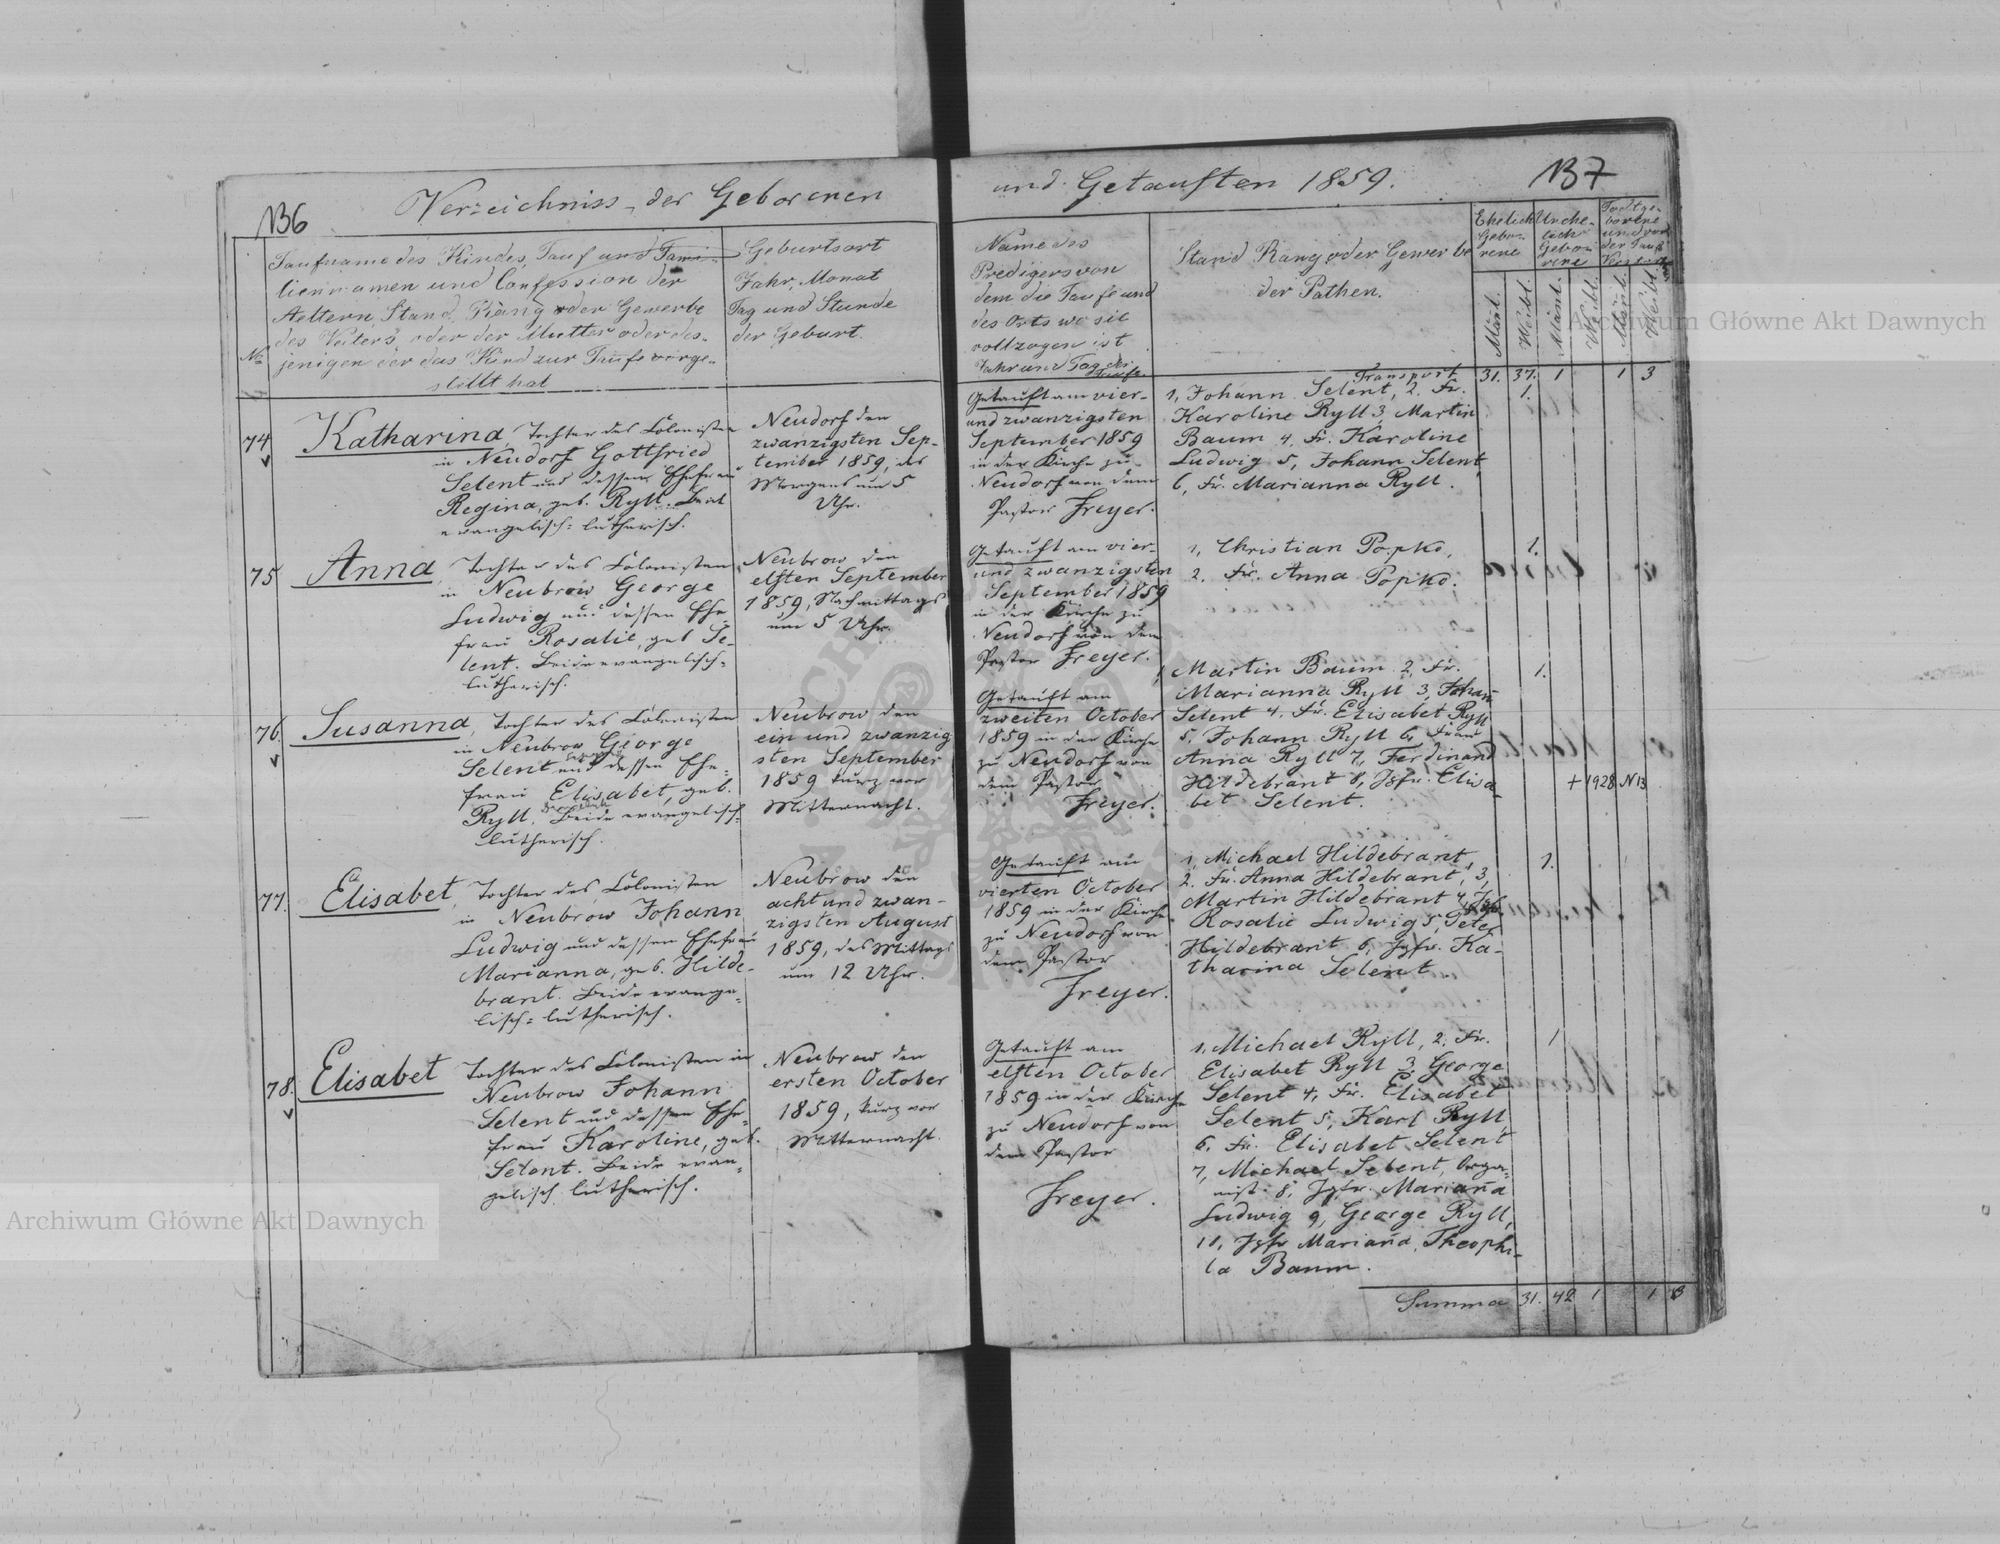 136
Verzeichniss der Geborenen
No
Taufname des Kindes, Tauf und Fami-
liennamen und Confession der
Aeltern, Stand, Rang oder Gewerbe
des Vaters oder der Mutter oder des-
jenigen der das Kind zur Taufe vorge-
stellt hat
Geburtsort
Jahr, Monat
Tag und Stunde
der Geburt.
74.
Katharina, Tochter des Colonisten
in Neudorf Gottfried
Selent und dessen Ehefrau
Regina, geb. Ryll. Beide
evangelisch-lutherisch.
Neudorf den
zwanzigsten Sep-
tember 1859, des
Morgens um 5
Uhr.
75.
Anna, Tochter des Colonisten
in Neubrow George
Ludwig und dessen Ehe
frau Rosalie, geb Se-
lent. Beide evangelisch-
lutherisch.
Neubrow den
elften September
1859, Nachmittags
um 5 Uhr.
76.
Susanna, Tochter des Colonisten
in Neubrow George
Selent und dessen Ehe-
frau Elisabet, geb.
Ryll. Beide evangelisch-
lutherisch.
Neubrow den
ein und zwanzig
sten September
1859 kurz vor
Mitternacht.
77.
Elisabet, Tochter des Colonisten
in Neubrow Johann
Ludwig und dessen Ehefrau
Marianna, geb. Hilde-
brant. Beide evange-
lisch-lutherisch.
Neubrow den
acht und zwan-
zigsten August
1859, des Mittags
um 12 Uhr.
78.
Elisabet Tochter des Colonisten in
Neubrow Johann
Selent und dessen Ehe-
frau Karoline, geb.
Selent. Beide evan-
gelisch lutherisch.
Neubrow den
ersten October
1859, kurz vor
Mitternacht.
137
und Getauften 1859.
Name des
Predigers von
dem die Taufe und
des Orts wo sie
vollzogen ist
Jahr und Tag der
Taufe.
Stand Rang oder Gewerbe
der Pathen.
Ehelich
Gebo-
rene
Unehe-
lich
Gebo-
rene
Todtge-
borene
und vor
der Taufe
Männl.
Weibl.
Männl.
Weibl.
Männl.
Weibl.
Transport 31. 37. 1 1 3
Getauft am vier-
und zwanzigsten
September 1859
in der Kirche zu
Neudorf von dem
Pastor Freyer.
1, Johann Selent, 2. Fr.
Karoline Ryll 3 Martin
Baum 4. Fr. Karoline
Ludwig 5, Johann Selent
6, Fr. Marianna Ryll.
1.
Getauft am vier-
und zwanzigsten
September 1859
in der Kirche zu
Neudorf von dem
Pastor Freyer.
1, Christian Popko,
2. Fr. Anna Popko.
1.
Getauft am
zweiten October
1859 in der Kirche
zu Neudorf von
dem Pastor
Freyer.
1 Martin Baum 2, Fr.
Marianna Ryll 3, Johann
Selent 4, Fr. Elisabet Ryll
5, Johann Ryll 6, Frau
Anna Ryll 7, Ferdinand
Hildebrant 8, Jgfr. Elisa-
bet Selent.
1.
+ 1928 N 13
Getauft am
vierten October
1859 in der Kirche
zu Neudorf von
dem Pastor
Freyer.
1, Michael Hildebrant,
2. Fr. Anna Hildebrant, 3,
Martin Hildebrant 4 Jgfr.
Rosalie Ludwig 5, Peter
Hildebrant 6, Jgfr. Ka-
tharina Selent.
1.
Getauft am
elften October
1859 in der Kirche
zu Neudorf von
dem Pastor
Freyer.
1, Michael Ryll, 2. Fr.
Elisabet Ryll 3, George
Selent 4, Fr. Elisabet
Selent 5, Karl Ryll,
6, Fr. Elisabet Selent
7, Michael Selent, Orga-
nist 8, Jgfr. Mariana
Ludwig 9, George Ryll,
10, Jgfr Mariana Theophi-
la Baum.
1
Summa 31. 42 1 1 3
Archiwum Główne Akt Dawnych
Archiwum Główne Akt Dawnych